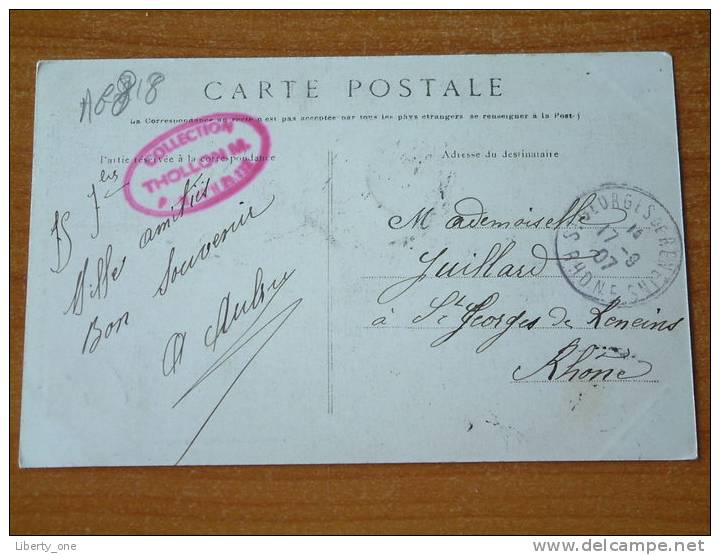 CARTE POSTALE
La Correspondance au recto n'est pas acceptée par tous les pays étrangers se renseigner à la Poste)
Partie réservée à la correspondance
Adresse du destinataire
COLLECTION
THOLLON M.
Mille amitiés
Bon Souvenir
Mademoiselle
Juillard
à St Georges de Reneins
Rhône
ST GEORGES DE RENEINS
17-9
07
RHONE
Liberty_one
www.delcampe.net